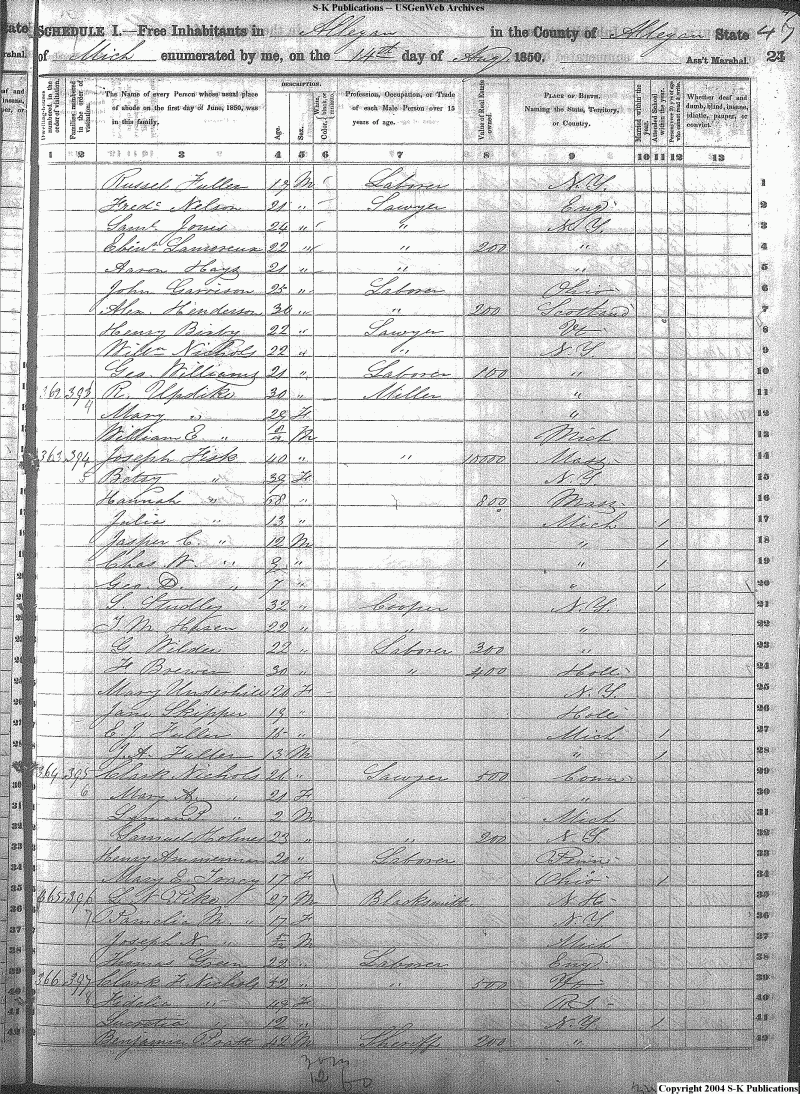 S-K Publications -- USGenWeb Archives
SCHEDULE I.—Free Inhabitants in Allegan in the County of Allegan State 47
of Mich enumerated by me, on the 14th day of Aug 1850. Ass't Marshal. 24
DESCRIPTION.
The Name of every Person whose usual place of abode on the first day of June, 1850, was in this family.
Age.
Sex.
Profession, Occupation, or Trade of each Male Person over 15 years of age.
Value of Real Estate owned.
PLACE OF BIRTH. Naming the State, Territory, or Country.
Married within the year.
Attended School within the year.
Whether deaf and dumb, blind, insane, idiotic, pauper, or convict.
1 2 3 4 5 6 7 8 9 10 11 12 13
Russel Fuller 17 M Laborer N.Y. 1
Fredc Nelson 21 " Sawyer Eng 2
Saml Jones 24 " " N.Y. 3
22 " " 200 " 4
Aaron Hays 21 " " " 5
John Garrison 25 " Laborer Ohio 6
Alex Henderson 30 " " 200 Scotland 7
Henry Bixby 22 " Sawyer Vt 8
Willm Nichols 22 " " N.Y. 9
Geo. Williams 21 " Laborer 100 " 10
362 393 R. Updike 30 " Miller " 11
4 Mary " 29 F " 12
William E " M Mich 13
363 394 Joseph Fisk 40 " " 15000 Mass 14
5 Betsy " 39 F N.Y. 15
Hannah " 68 " 800 Mass 16
Julia " 13 " Mich 1 17
Jasper C. " 12 M " 1 18
Chas W. " 9 " " 1 19
Geo D. " 7 " " 1 20
S. Studley 32 " Cooper N.Y. 21
22 " " " 22
G. Wilder 22 " Laborer 300 " 23
H Brewer 30 " " 400 Holl 24
Mary Underhill 20 F N.Y. 25
Jane Skipper 19 " Holl 26
C. J. Fuller 15 " Mich 1 27
J. A Fuller 13 M " 1 28
364 395 Clark Nichols 26 " Sawyer 500 Conn 29
6 Mary A. " 21 F " 30
" 2 M Mich 31
Samuel Holmes 23 " " 200 N.Y. 32
Henry Ammerman 20 " Laborer Penn 33
Mary E. 17 F Ohio 1 34
365 396 G N Pike 27 M Blacksmith N.H. 35
7 Pamelia M " 17 F N.Y 36
Joseph N. " M Mich 37
Thomas Green 22 " Laborer Eng 38
366 397 Clark F Nichols 52 " " 500 Vt 39
8 Fidelia " 49 F R I 40
Lucretia " 12 " N.Y 1 41
Benjamin Pratt 42 M Sheriff 200 " 42
Copyright 2004 S-K Publications